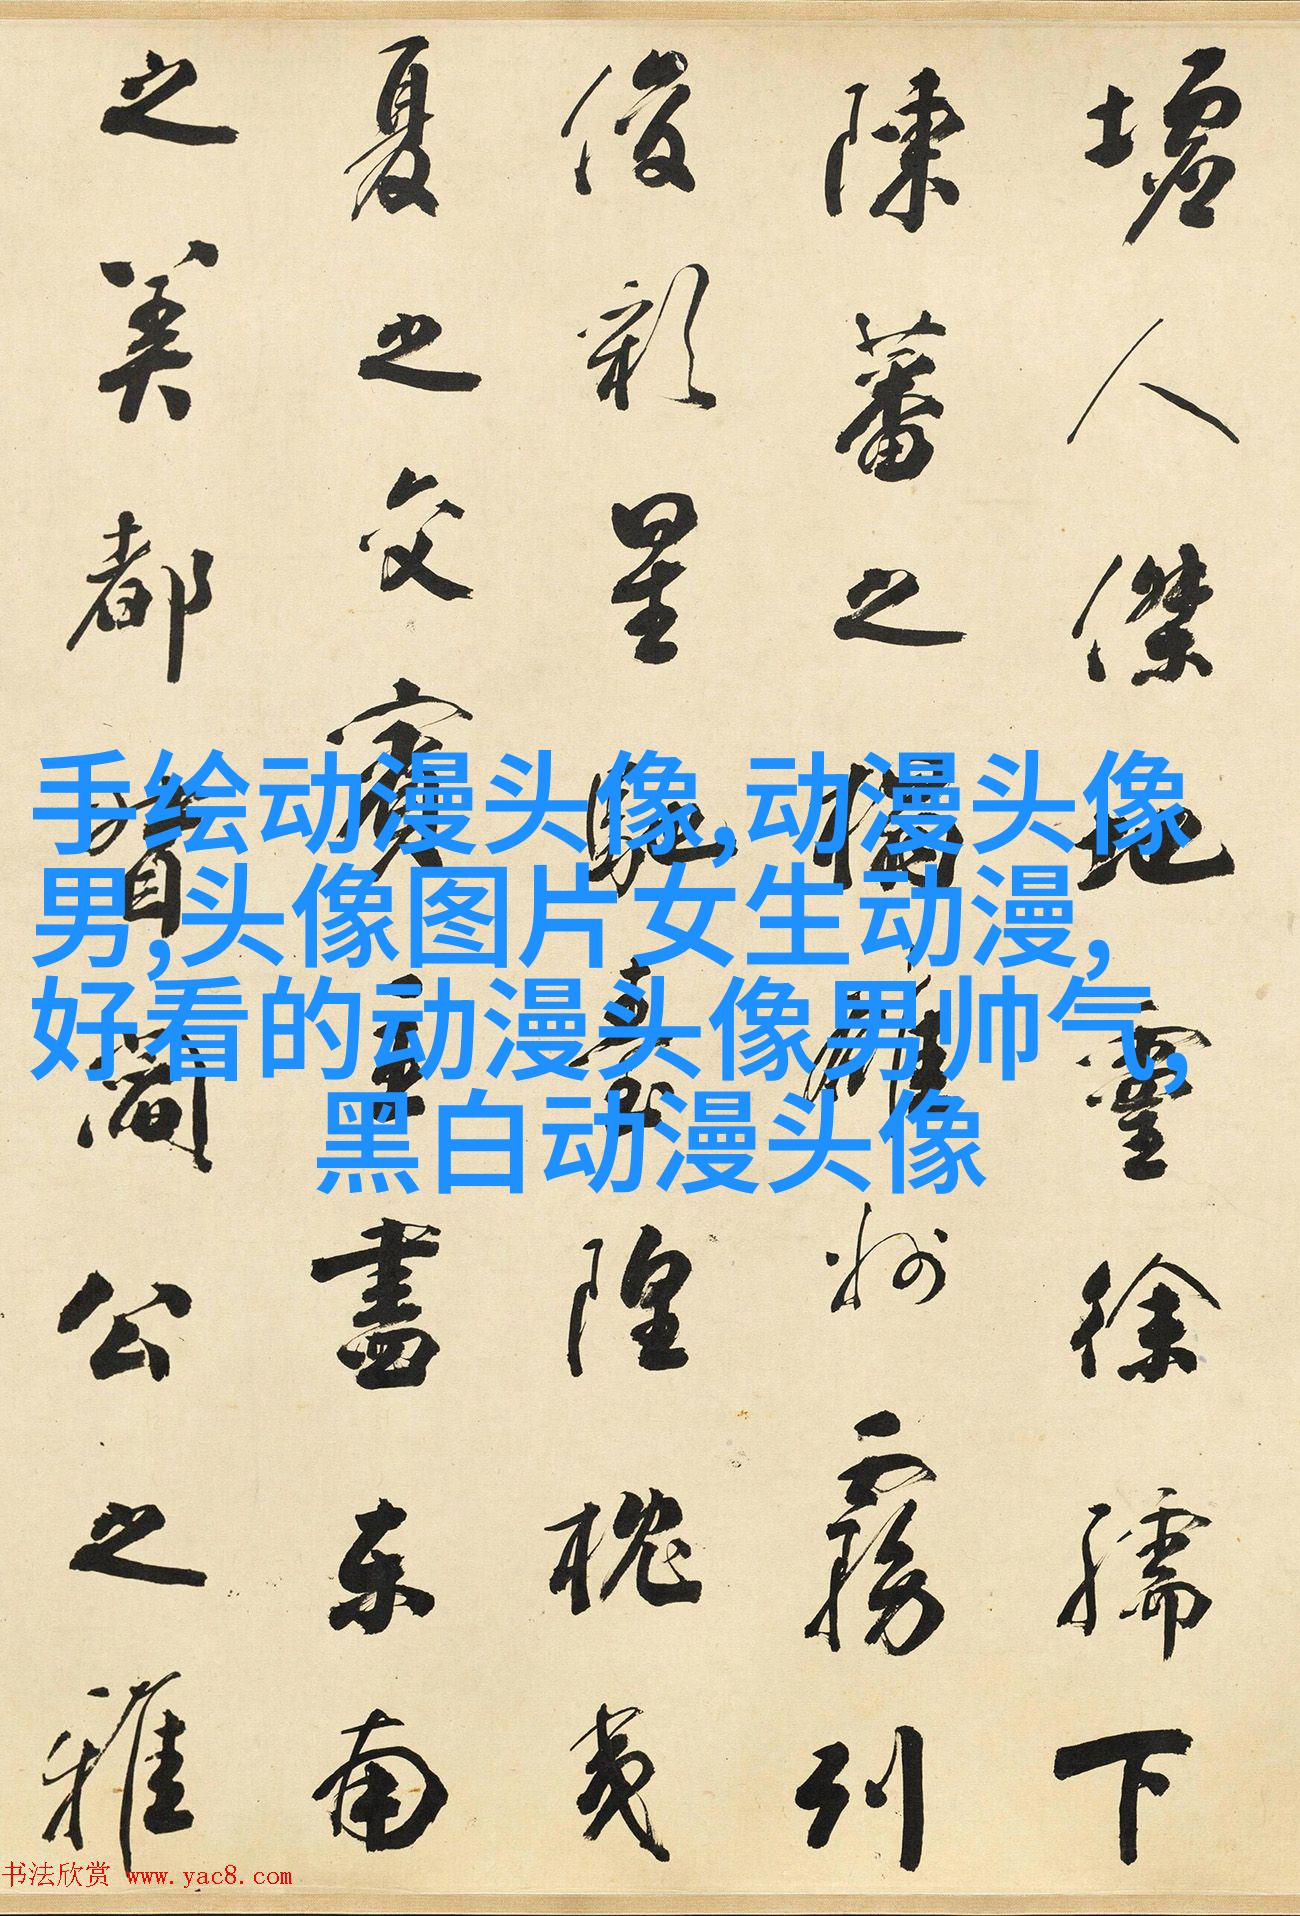 墟人傑地靈徐孺下
陳蕃之榻雄州霧列
俊彩星馳臺隍枕夷
夏之交賓主盡东南
之美都督閻公之雅
手绘动漫头像,动漫头像
男,头像图片女生动漫,
好看的动漫头像男帅气,
黑白动漫头像
书法欣赏 www.yac8.com